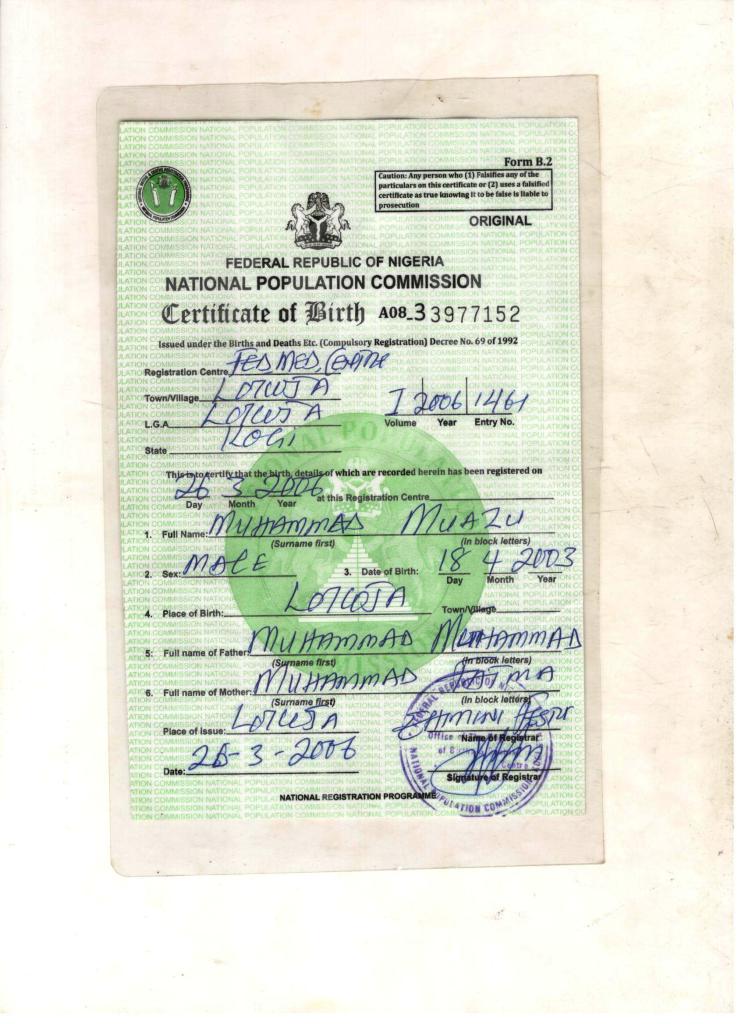 Form B.2
Caution: Any person who (1) Falsifies any of the
particulars on this certificate or (2) uses a falsified
certificate as true knowing it to be false is liable to
prosecution
ORIGINAL
FEDERAL REPUBLIC OF NIGERIA
NATIONAL POPULATION COMMISSION
Certificate of Birth A08-33977152
Issued under the Births and Deaths Etc. (Compulsory Registration) Decree No. 69 of 1992
Registration Centre FED MED. CENTRE
Town/Village LOKOJA
L.G.A LOKOJA I 2006 1461
Volume Year Entry No.
State KOGI
This is to certify that the birth, details of which are recorded herein has been registered on
26 3 2006 at this Registration Centre
Day Month Year
1. Full Name: MUHAMMAD MUAZU
(Surname first) (In block letters)
2. Sex: MALE 3. Date of Birth: 18 4 2003
Day Month Year
4. Place of Birth: LOKOJA Town/Village
5: Full name of Father: MUHAMMAD MUHAMMAD
(Surname first) (In block letters)
6. Full name of Mother: MUHAMMAD
(Surname first) (In block letters)
Place of Issue: LOKOJA
Name of Registrar
Date: 26-3-2006
Signature of Registrar
NATIONAL REGISTRATION PROGRAMME
NATIONAL POPULATION COMMISSION